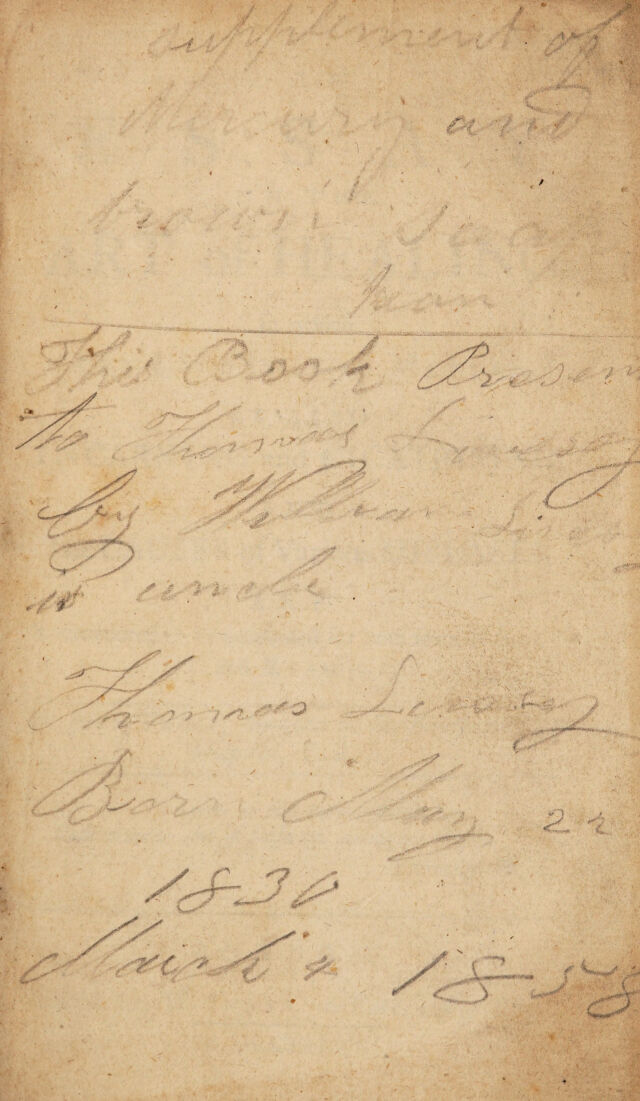 supplement of
Mercury and
brown soap
This Book Presen
to Thomas Lindsey
by William
is uncle
Thomas Lindsey
Born May 22
1830
March 4 1858